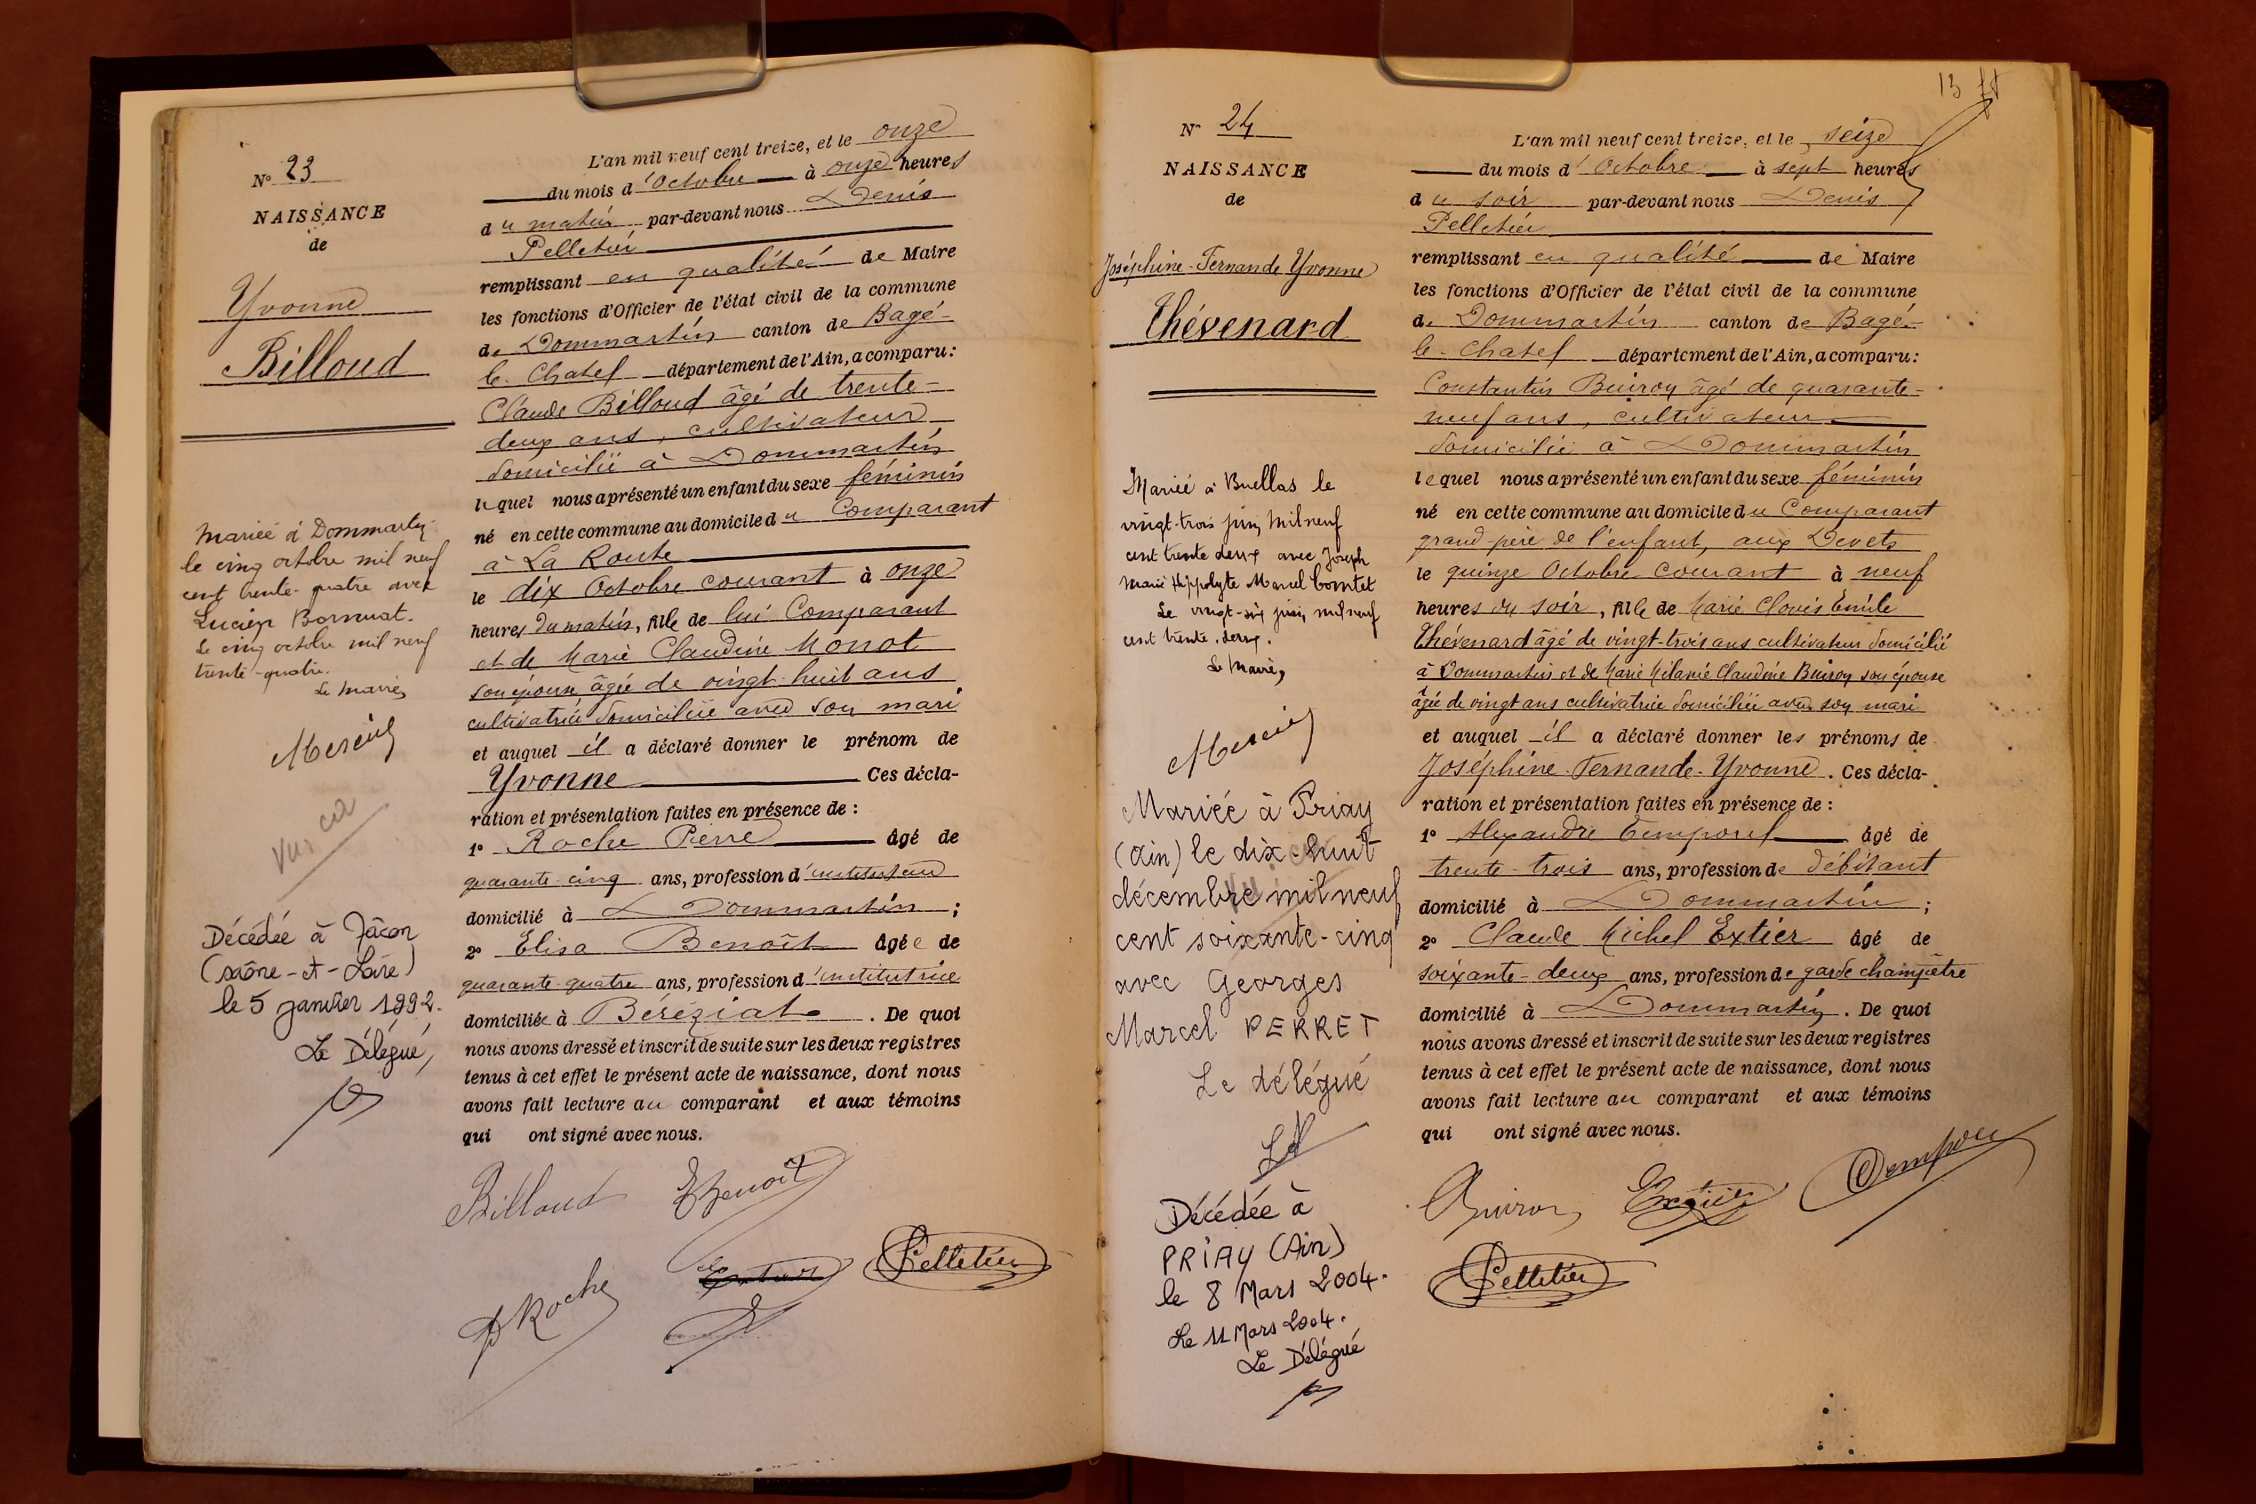 N° 23
NAISSANCE
de
Yvonne
Billoud
Mariée à Dommartin
le cinq octobre mil neuf
cent trente-quatre avec
Lucien
Le cinq octobre mil neuf
trente-quatre.
Le Maire,
Vu,
Décédée à Mâcon
(Saône-et-Loire)
le 5 janvier 1992.
Le Délégué,
L'an mil neuf cent treize, et le onze
du mois d'Octobre à onze heures
du matin par-devant nous Denis
Pelletier
remplissant en qualité de Maire
les fonctions d'Officier de l'état civil de la commune
de Dommartin canton de Bagé-
le-Chatel département de l'Ain, a comparu:
Claude Billoud âgé de trente-
deux ans, cultivateur
domicilié à Dommartin
lequel nous a présenté un enfant du sexe féminin
né en cette commune au domicile du Comparant
à La Route
le dix Octobre courant à onze
heures du matin, fille de lui Comparant
et de Marie Claudine Monot
son épouse, âgée de vingt-huit ans
cultivatrice domiciliée avec son mari
et auquel il a déclaré donner le prénom de
Yvonne Ces décla-
ration et présentation faites en présence de :
1° Roche Pierre âgé de
quarante-cinq ans, profession d'instituteur
domicilié à Dommartin ;
2° Elisa Benoît âgée de
quarante-quatre ans, profession d'institutrice
domiciliée à Béréziat . De quoi
nous avons dressé et inscrit de suite sur les deux registres
tenus à cet effet le présent acte de naissance, dont nous
avons fait lecture au comparant et aux témoins
qui ont signé avec nous.
Billoud EBenoît
PRoche Pelletier
13
N° 24
NAISSANCE
de
Joséphine-Fernande Yvonne
Thévenard
Mariée à Buellas le
vingt-trois juin mil neuf
cent trente deux avec Joseph
Marie Hippolyte Marcel Comtet
Le vingt-six juin mil neuf
cent trente-deux.
Le Maire,
Mariée à Priay
(Ain) le dix-huit
décembre mil neuf
cent soixante-cinq
avec Georges
Marcel PERRET
Le délégué
Décédée à
PRIAY (Ain)
le 8 Mars 2004.
Le 11 Mars 2004.
Le Délégué
L'an mil neuf cent treize, et le seize
du mois d'Octobre à sept heures
du soir par-devant nous Denis
Pelletier
remplissant en qualité de Maire
les fonctions d'Officier de l'état civil de la commune
de Dommartin canton de Bagé-
le-Chatel département de l'Ain, a comparu:
Constantin Buiron âgé de quarante-
neuf ans, cultivateur
domicilié à Dommartin
lequel nous a présenté un enfant du sexe féminin
né en cette commune au domicile du Comparant
grand-père de l'enfant, aux Devets
le quinze Octobre courant à neuf
heures du soir, fille de Marie Clovis Emile
Thévenard âgé de vingt-trois ans cultivateur domicilié
à Dommartin et de Marie Mélanie Claudine Buiron son épouse
âgée de vingt ans cultivatrice domiciliée avec son mari
et auquel il a déclaré donner les prénoms de
Joséphine-Fernande-Yvonne. Ces décla-
ration et présentation faites en présence de :
1° Alexandre Temporel âgé de
trente-trois ans, profession de débitant
domicilié à Dommartin ;
2° Claude Michel Extier âgé de
soixante-deux ans, profession de garde champêtre
domicilié à Dommartin. De quoi
nous avons dressé et inscrit de suite sur les deux registres
tenus à cet effet le présent acte de naissance, dont nous
avons fait lecture au comparant et aux témoins
qui ont signé avec nous.
Buiron Extier
Pelletier